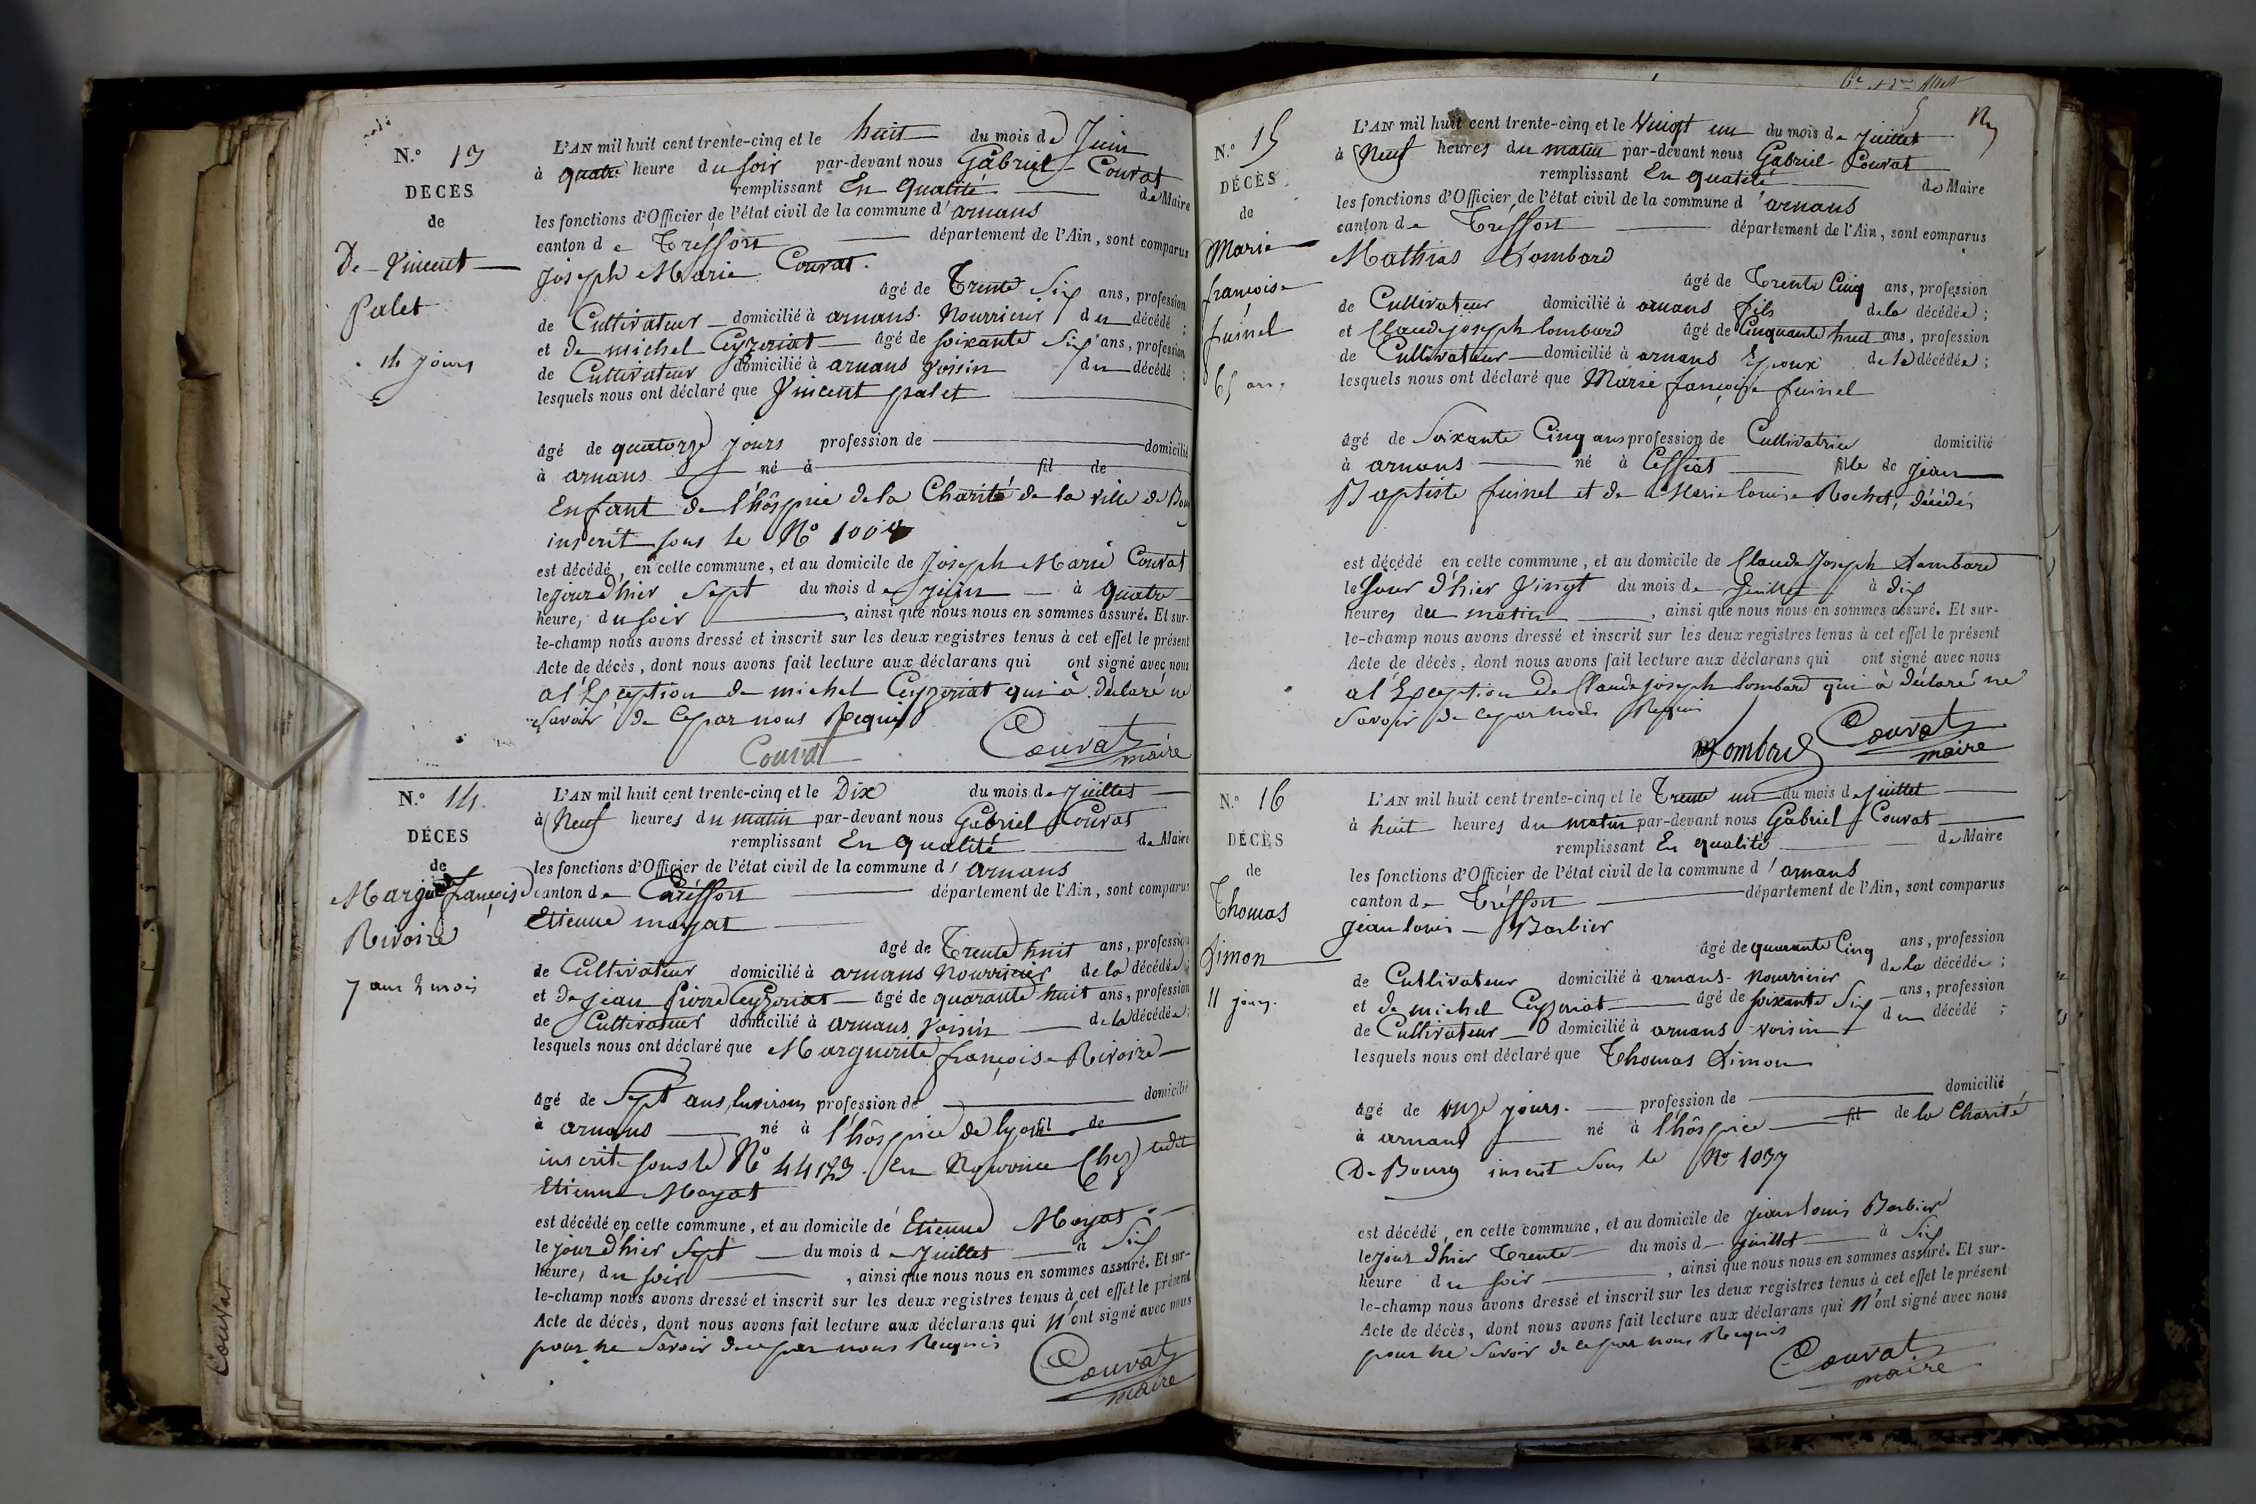 N.° 13
DÉCES
de
De Vincent
Palet
14 jours
L'AN mil huit cent trente-cinq et le huit du mois de Juin
à quatre heure du soir par-devant nous Gabriel Couvat
remplissant En qualité de Maire
les fonctions d'Officier de l'état civil de la commune d'arnans
canton de Treffort département de l'Ain, sont comparus
joseph Marie Couvat.
âgé de Trente Six ans, profession
de Cultivateur domicilié à arnans. Nourricier du décédé ;
et de michel Ceyzeriat âgé de soixante Six ans, profession
de Cultivateur domicilié à arnans voisin du décédé ;
lesquels nous ont déclaré que Vincent palet
âgé de quatorze jours profession de domicilié
à arnans né à fil de
Enfant de l'hôspice de la Charité de la ville de Bourg
inscrit sous le N° 1004
est décédé, en cette commune, et au domicile de joseph Marie Couvat
le jour d'hier Sept du mois de juin à quatre
heure, du soir , ainsi que nous nous en sommes assuré. Et sur-
le-champ nous avons dressé et inscrit sur les deux registres tenus à cet effet le présent
Acte de décès, dont nous avons fait lecture aux déclarans qui ont signé avec nous
a l'Exception de michel Ceyzeriat qui à déclaré ne
Savoir de ce par nous Requis
Couvat
Couvat
maire
N.° 14.
DÉCES
de
Marguerite françoise
Rivoire
7 ans 2 mois
L'AN mil huit cent trente-cinq et le Dix du mois de juillet
à Neuf heures du matin par-devant nous Gabriel Couvat
remplissant En qualité de Maire
les fonctions d'Officier de l'état civil de la commune d'arnans
canton de Treffort département de l'Ain, sont comparus
Etienne mayat
âgé de Trente huit ans, profession
de Cultivateur domicilié à arnans Nourricier de la décédée
et de jean Pierre Ceyzeriat âgé de quarante huit ans, profession
de Cultivateur domicilié à arnans voisin de la décédée ;
lesquels nous ont déclaré que Marguerite françoise Rivoire
âgé de Sept ans, Environ profession de domicilié
à arnans né à l'hôspice de lyon fil de
inscrite sous le N° 44123. En Nourrice Chez ledit
Etienne Mayat
est décédé en cette commune, et au domicile de Etienne Mayat
le jour d'hier Sept du mois de juillet à Six
heure, du soir , ainsi que nous nous en sommes assuré. Et sur-
le-champ nous avons dressé et inscrit sur les deux registres tenus à cet effet le présent
Acte de décès, dont nous avons fait lecture aux déclarans qui N'ont signé avec nous
pour ne Savoir de ce par nous Requis
Couvat
maire
N.° 15
DÉCÈS
de
Marie
françoise
fuinel
65 ans
L'AN mil huit cent trente-cinq et le Vingt un du mois de juillet
à Neuf heures du matin par-devant nous Gabriel Couvat
remplissant En qualité de Maire
les fonctions d'Officier de l'état civil de la commune d'arnans
canton de Treffort département de l'Ain, sont comparus
Mathias Lombard
âgé de Trente Cinq ans, profession
de Cultivateur domicilié à arnans fils de la décédée ;
et Claude joseph lombard âgé de Cinquante huit ans, profession
de Cultivateur domicilié à arnans Epoux de la décédée ;
lesquels nous ont déclaré que Marie françoise fuinel
âgé de Soixante Cinq ans profession de Cultivatrice domicilié
à arnans né à Cessiat fille de jean
Baptiste fuinel et de Marie louise Rochet, décédés
est décédé en cette commune, et au domicile de Claude Joseph Lombard
le Jour d'hier Vingt du mois de Juillet à dix
heures du matin , ainsi que nous nous en sommes assuré. Et sur-
le-champ nous avons dressé et inscrit sur les deux registres tenus à cet effet le présent
Acte de décès, dont nous avons fait lecture aux déclarans qui ont signé avec nous
a l'Exception de Claude joseph lombard qui à déclaré ne
Savoir de ce par nous Requis
Lombard
Couvat
maire
N.° 16
DÉCÈS
de
Thomas
Simon
11 jours.
L'AN mil huit cent trente-cinq et le Trente un du mois de juillet
à huit heures du matin par-devant nous Gabriel Couvat
remplissant En qualité de Maire
les fonctions d'Officier de l'état civil de la commune d'arnans
canton de Treffort département de l'Ain, sont comparus
jean louis Barbier
âgé de quarante Cinq ans, profession
de Cultivateur domicilié à arnans. nourricier de la décédée ;
et de michel Ceyzeriat âgé de soixante Six ans, profession
de Cultivateur domicilié à arnans voisin du décédé ;
lesquels nous ont déclaré que Thomas Simon
âgé de onze jours. profession de domicilié
à arnans né à l'hôspice fil de la Charité
De Bourg inscrit Sous le N° 1037
est décédé, en cette commune, et au domicile de jean louis Barbier
le jour d'hier Trente du mois d juillet à Six
heure du soir , ainsi que nous nous en sommes assuré. Et sur-
le-champ nous avons dressé et inscrit sur les deux registres tenus à cet effet le présent
Acte de décès, dont nous avons fait lecture aux déclarans qui N'ont signé avec nous
pour ne Savoir de ce par nous Requis
Couvat
maire
Couvat